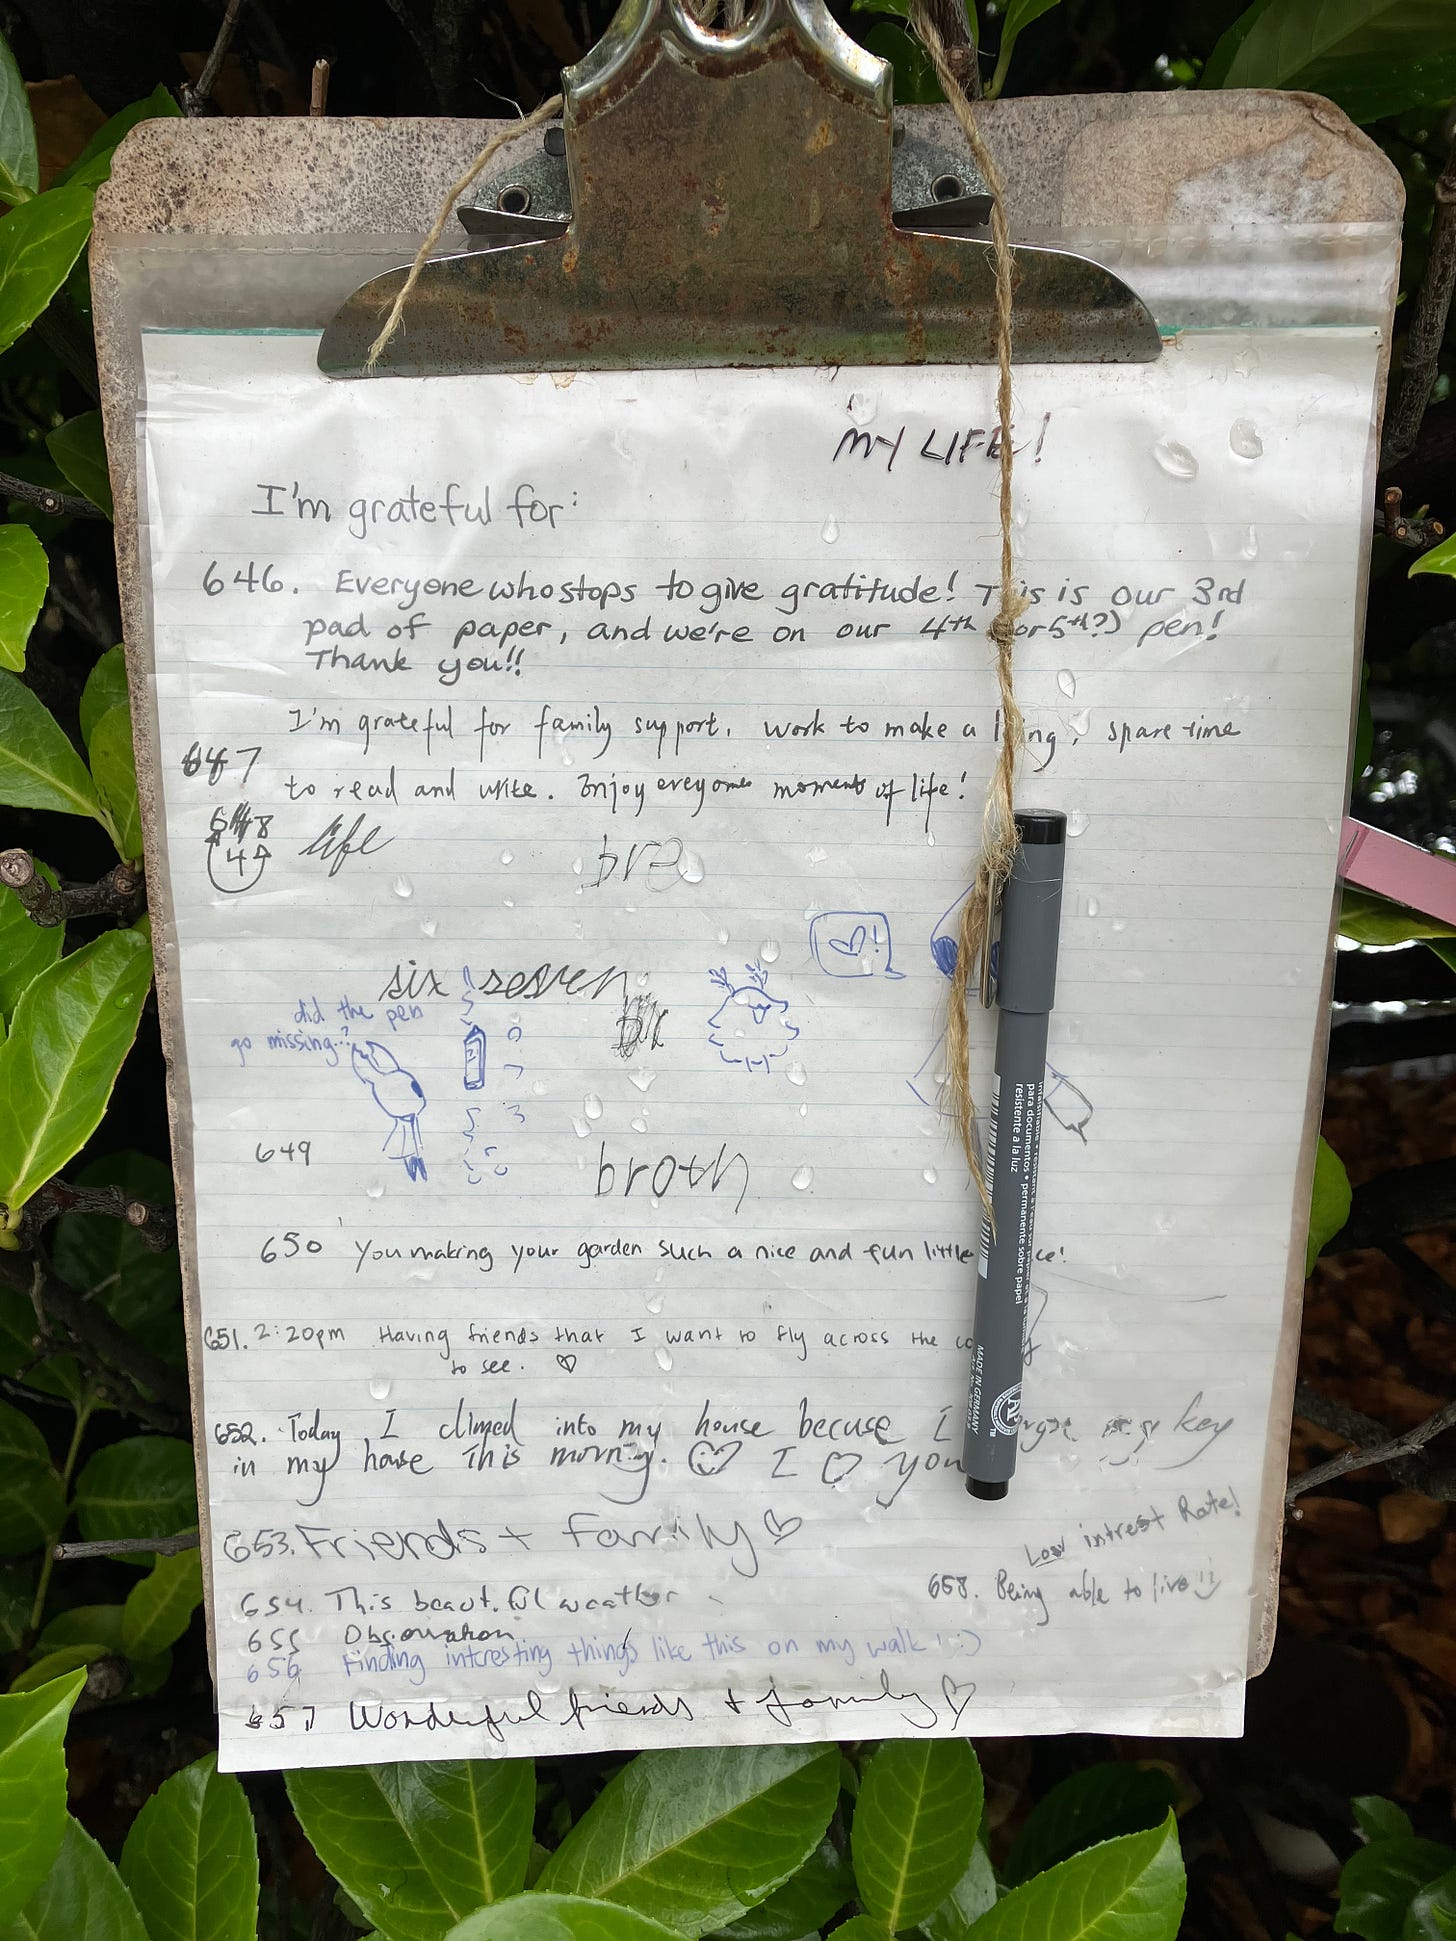 MY LIFE!
I'm grateful for:
646. Everyone who stops to give gratitude! This is our 3rd
pad of paper, and we're on our 4th (or 5th?) pen!
Thank you!!
I'm grateful for family support, work to make a living, spare time
647
to read and write. Enjoy moments of life!
648
life
bro
!
six seven
did the pen
go missing..?
649
broth
650 You making your garden such a nice and fun little
651. 2:20pm Having friends that I want to fly across the
to see. ♡
652. Today I climed into my house becuse I my key
in my house This morning. I ♡ you
653. Friends + family ♡
Low intrest Rate!
654. This beautiful weather
658. Being able to live!!
655 Observation
656 Finding interesting things like this on my walk! :)
657 Wonderful friends + family ♡
para documentos • permanente sobre papel
resistente a la luz
MADE IN GERMANY